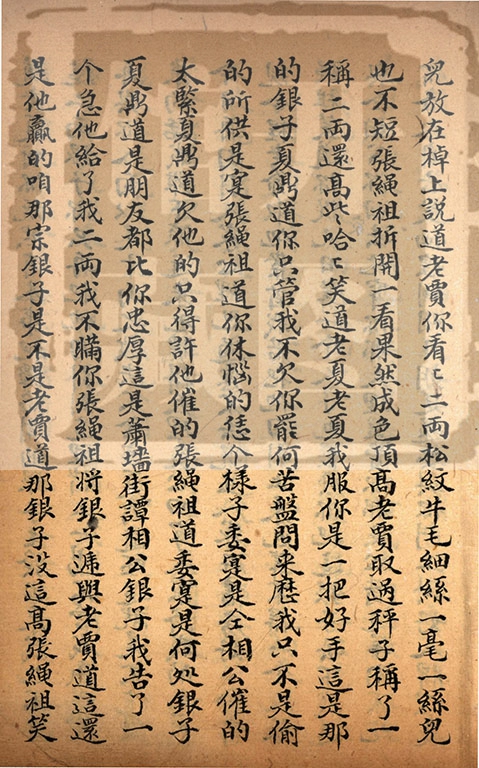 兒放在棹上説道老賈你看〻二両松紋牛毛細絲一毫一絲兒
也不短張繩祖折開一看果然成色頂髙老賈取過秤子稱了一
稱二両還髙些哈〻笑道老夏老夏我服你是一把好手這是那
的銀子夏鼎道你只管我不欠你罷何苦盤問来歷我只不是偷
的所供是寔張繩祖道你休惱的恁个樣子委寔是仝相公催的
太緊夏鼎道欠他的只得許他催的張繩祖道委寔是何処銀子
夏鼎道是朋友都比你忠厚這是蕭墙街譚相公銀子我告了一
个急他給了我二両我不瞞你張繩祖将銀子遞與老賈道這還
是他贏的咱那宗銀子是不是老賈道那銀子没這髙張繩祖笑